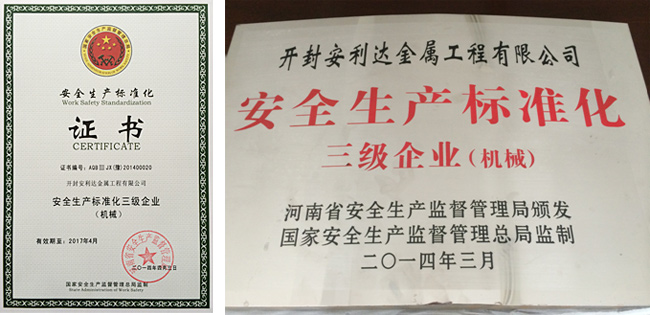 安全生产标准化
Work Safety Standardization
证书
CERTIFICATE
证书编号：AQBⅢJX(豫)201400020
开封安利达金属工程有限公司
安全生产标准化三级企业
（机械）
有效期至：2017年4月
国家安全生产监督管理总局监制
State Administration of Work Safety
开封安利达金属工程有限公司
安全生产标准化
三级企业（机械）
河南省安全生产监督管理局颁发
国家安全生产监督管理总局监制
二〇一四年三月